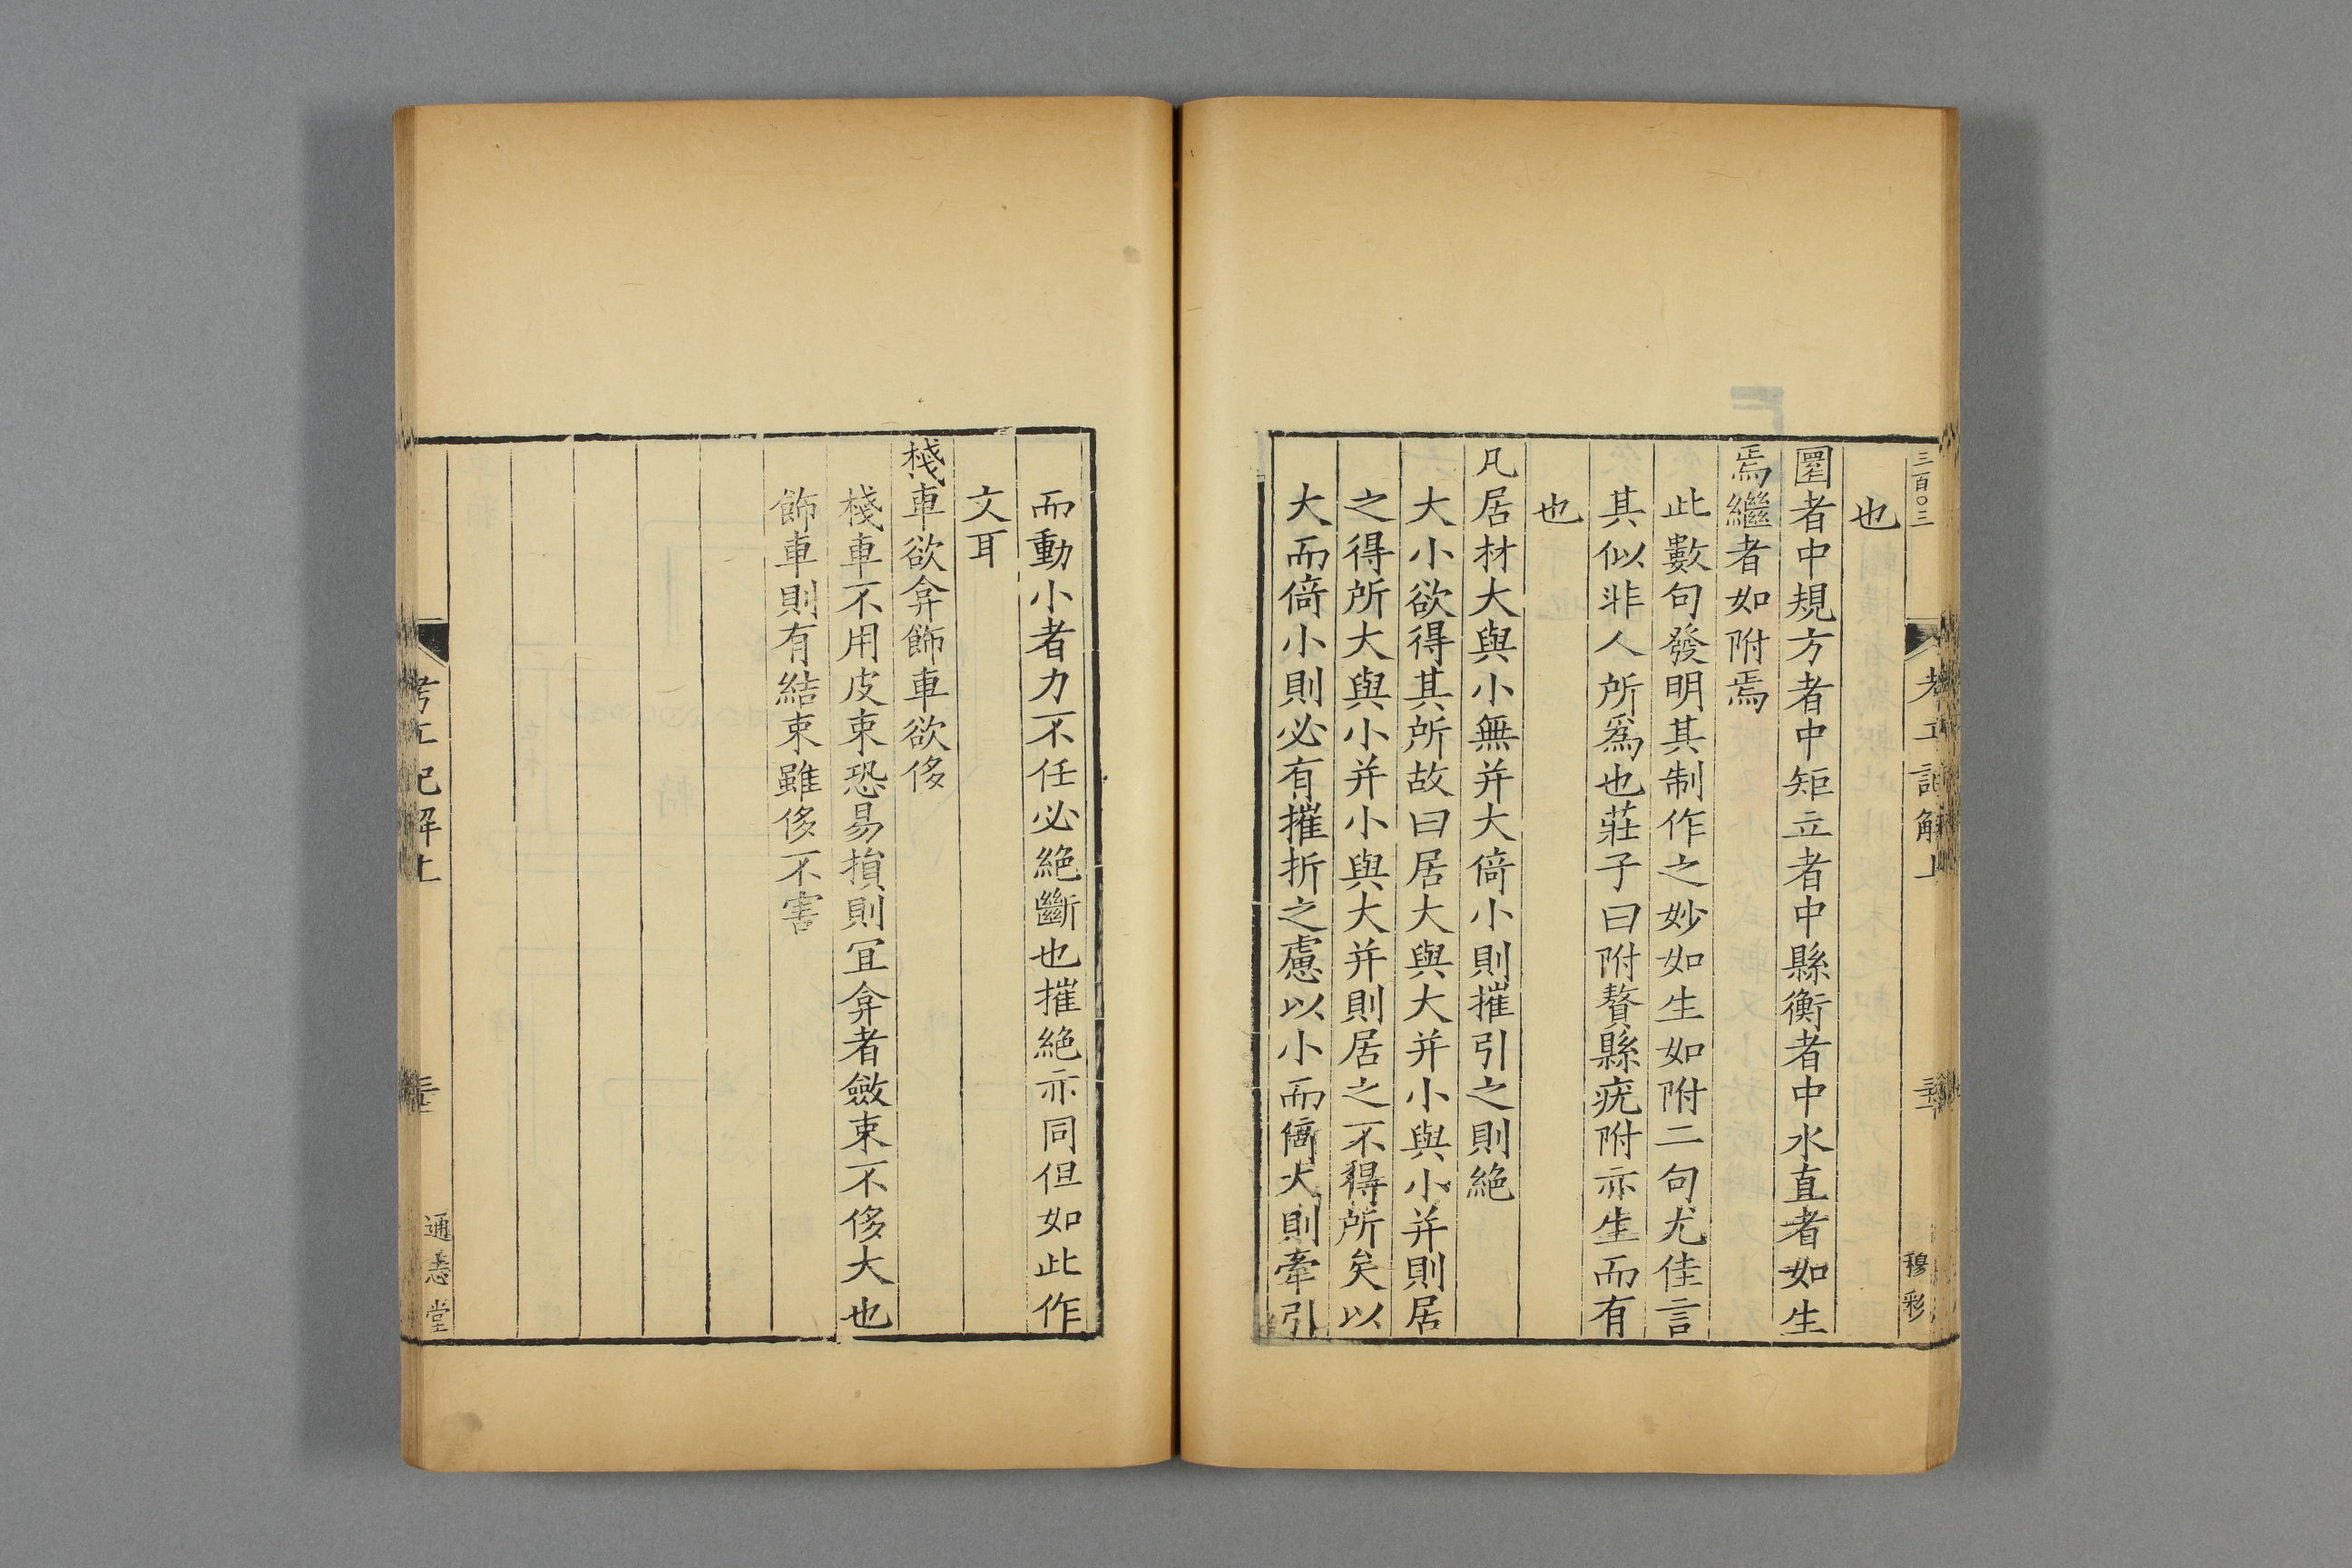 三百〇三
考工記解上
穆彩
也
圜者中規方者中矩立者中縣衡者中水直者如生
焉繼者如附焉
此數句發明其制作之妙如生如附二句尤佳言
其似非人所爲也莊子曰附贅縣疣附亦生而有
也
凡居材大與小無并大倚小則摧引之則絶
大小欲得其所故曰居大與大并小與小并則居
之得所大與小并小與大并則居之不得所矣以
大而倚小則必有摧折之慮以小而倚大則牽引
而動小者力不任必絶斷也摧絶亦同但如此作
文耳
棧車欲弇飾車欲侈
棧車不用皮束恐易損則冝弇者斂束不侈大也
飾車則有結束雖侈不害
考工記解上
通志堂